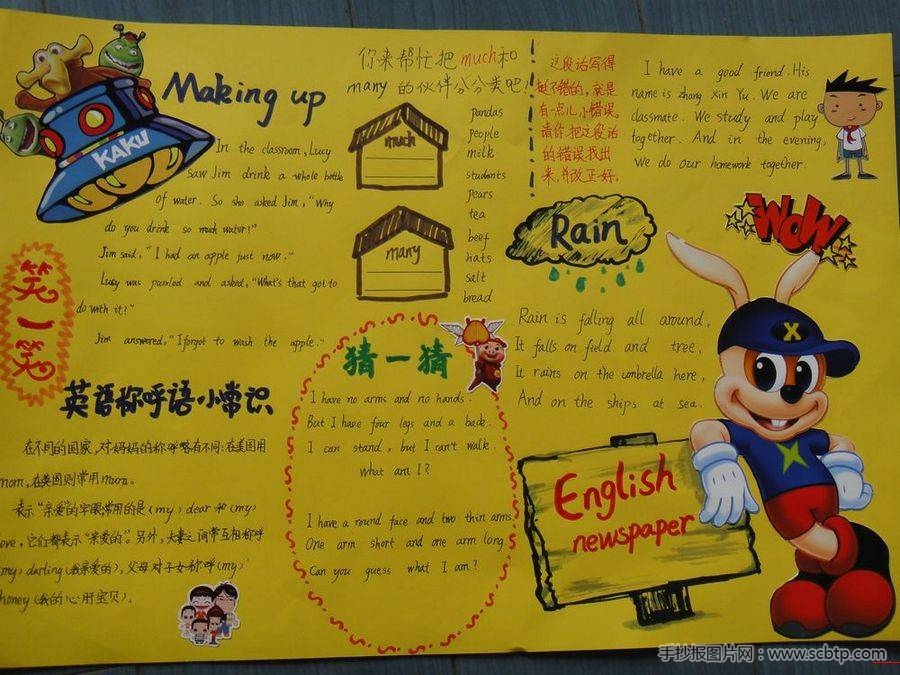 KAKU
Making up
In the classroom, Lucy
saw Jim drink a whole bottle
of water. So she asked Jim, "Why
do you drink so much water?"
Jim said, "I had an apple just now."
Lucy was puzzled and asked, "What's that got to
do with it?"
Jim answered, "I forgot to wash the apple."
笑一笑
英语称呼语小常识
在不同的国家,对妈妈的称呼略有不同:在美国用
mom,在英国则常用mum。
表示"亲爱"的字眼常用的是(my) dear 和 (my)
它们都表示"亲爱的"。另外,夫妻之间常互相称呼
my) darling (我亲爱的), 父母对子女称呼(my)
honey (我的心肝宝贝)。
你来帮忙把much和
many 的伙伴分分类吧!
much
many
pandas
people
milk
students
pears
tea
beef
hats
salt
bread
猜一猜
I have no arms and no hands.
But I have four legs and a back.
I can stand, but I can't walk.
What am I?
I have a round face and two thin arms
One arm short and one arm long
Can you guess what I am?
这段话写得
挺不错的,就是
有一点儿小错误。
请你把这段话
的错误找出
来,并改正好。
I have a good friend. His
name is zhang Xin Yu. We are
classmate. We study and play
together. And in the evening,
we do our homework together.
Rain
WOW
Rain is falling all around,
It falls on field and tree,
It rains on the umbrella here,
And on the ships at sea.
X
English
newspaper
手抄报图片网:www.scbtp.com